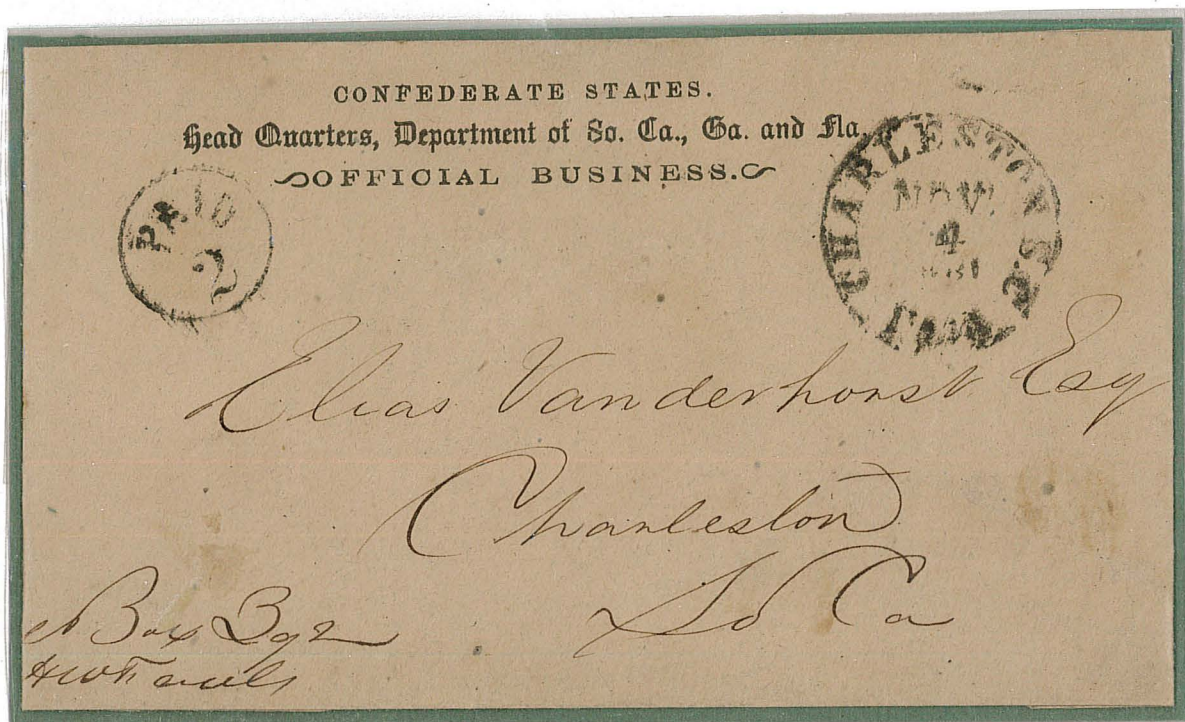 CONFEDERATE STATES.
Head Quarters, Department of So. Ca., Ga. and Fla.
OFFICIAL BUSINESS.
PAID
2
CHARLESTON S.C.
NOV.
4
Elias Vanderhorst Esq
Charleston
So Ca
Box